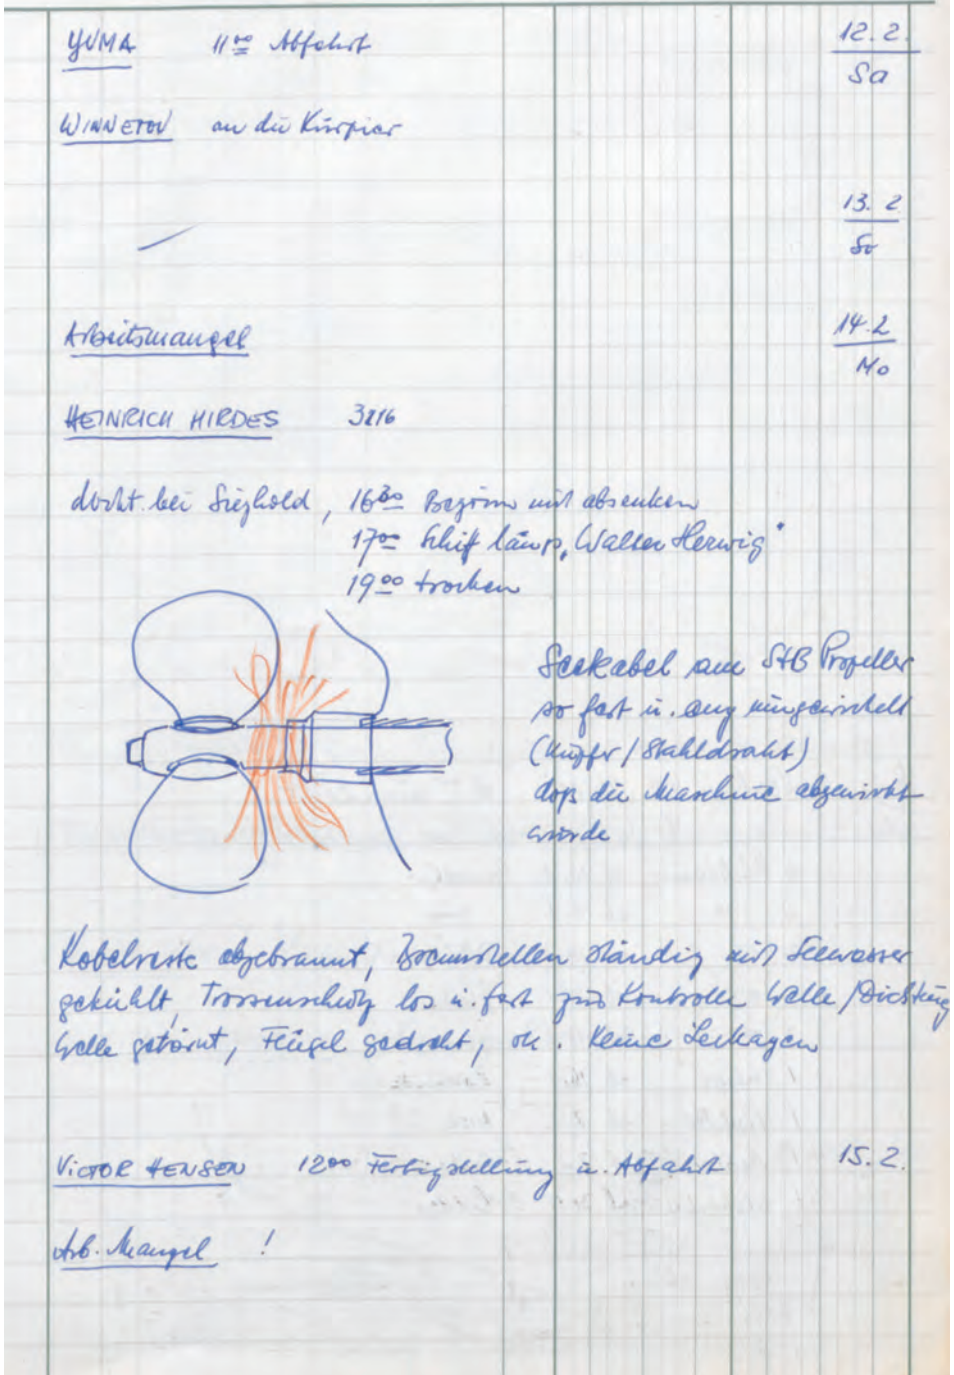 YUMA 11⁰⁰ Abfahrt 12.2.
Sa
WINNETOU an die Kürpier
13. 2
So
Arbeitsmangel 14.2
Mo
HEINRICH HIRDES 3216
dockt bei Sieghold, 16³⁰ Beginn mit absenken
17⁰⁰ Schiff längs "Walter Herwig"
19⁰⁰ trocken
Seekabel am StB Propeller
so fest u. eng
(Kupfer / Stahldraht)
daß die Maschine abgewürgt
wurde
Kabelreste abgebrannt, Brennstellen ständig mit Seewasser
gekühlt, Trossenschutz los u. fest zur Kontrolle Welle / Dichtung
Welle getörnt, Flügel gedreht, ok. Keine Leckagen
VICTOR HENSEN 12⁰⁰ Fertigstellung u. Abfahrt 15.2.
Arb. Mangel !